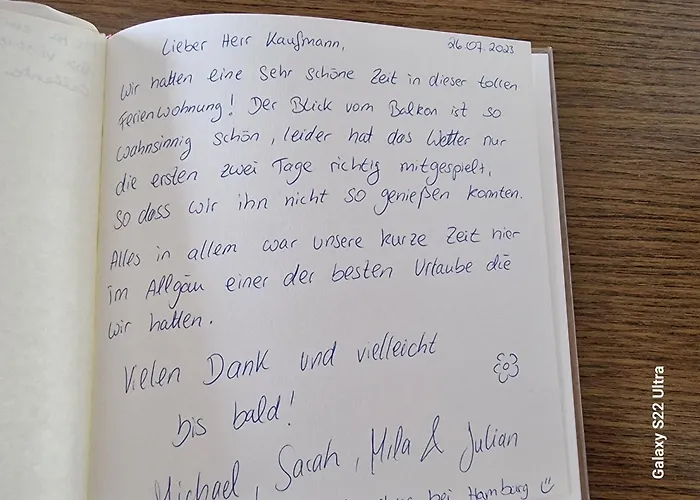 26.07.2023
Lieber Herr Kaufmann,
wir hatten eine sehr schöne Zeit in dieser tollen
Ferienwohnung! Der Blick vom Balkon ist so
wahnsinnig schön, leider hat das Wetter nur
die ersten zwei Tage richtig mitgespielt,
so dass wir ihn nicht so genießen konnten.
Alles in allem war unsere kurze Zeit hier
im Allgäu einer der besten Urlaube die
wir hatten.
Vielen Dank und vielleicht
bis bald!
Michael, Sarah, Mila & Julian
bei Hamburg
Galaxy S22 Ultra